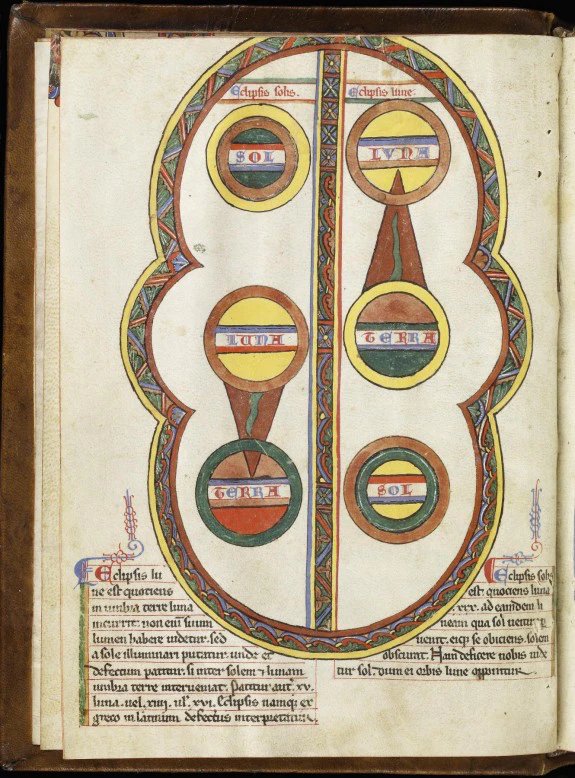 Eclipsis solis.
Eclipsis lune.
SOL
LVNA
LUNA
TERRA
TERRA
SOL
Eclipsis lu
ne est quotiens
in umbra terre luna
incurrit. non eni suum
lumen habere uidetur. sed
a sole illuminari putatur. unde et
defectum patitur. si inter solem & lunam
umbra terre interueniat. Patitur aut xv.
luna. uel. xiiii. ul. xvi. Eclipsis namq; ex
greco in latinum defectus interpretatur.
Eclipsis solis
est quociens luna
xxx. ad eamdem li
neam qua sol uehitur
uenit. eiq; se obiciens. solem
obscurat. Nam deficere nobis uide
tur sol. dum ei orbis lune opponitur.